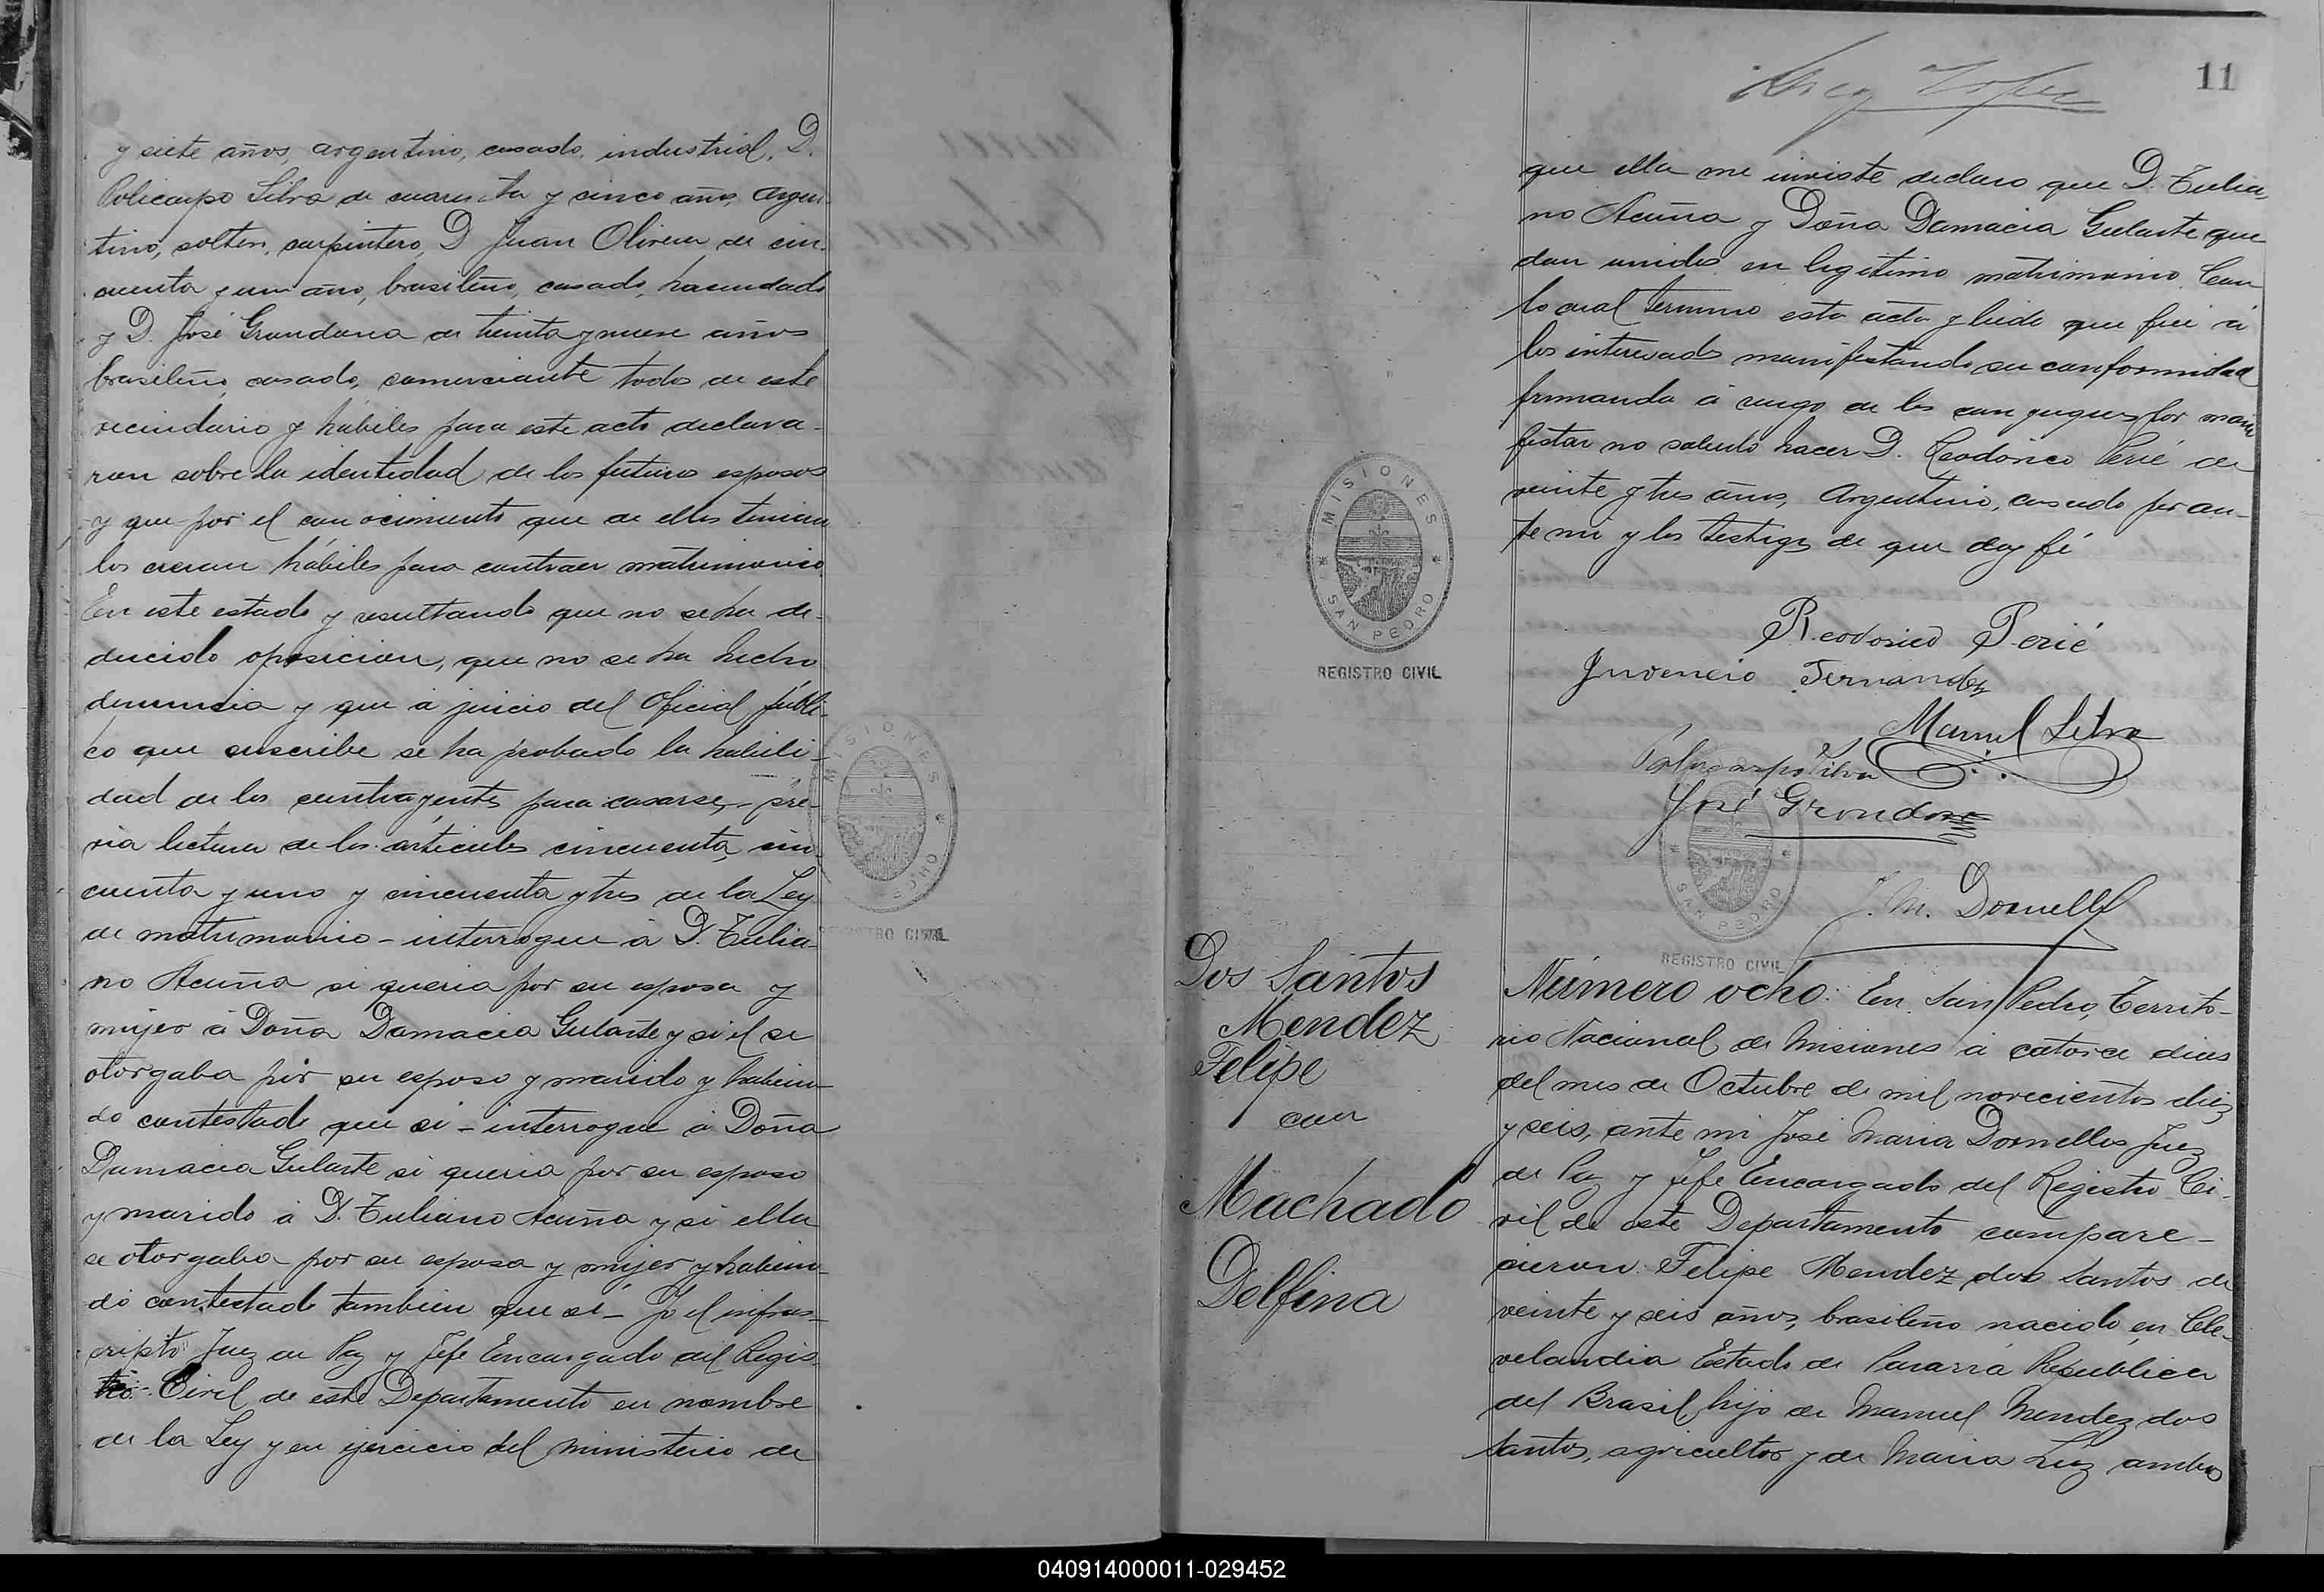 y siete años, argentino, casado, industrial, D.
Policarpo Silva de cuarenta y cinco años, argen-
tino, soltero, carpintero, D Juan Olivera de cin-
cuenta y un año, brasileño, casado, hacendado
y D. José Grondona de treinta y nueve años
brasileño, casado, comerciante todos de este
vecindario y hábiles para este acto declara-
ron sobre la identidad de los futuros esposos
y que por el conocimiento que de ellos tenian
los creian hábiles para contraer matrimonio
En este estado y resultando que no se ha de-
ducido oposicion, que no se ha hecho
denuncia y que á juicio del Oficial públi-
co que suscribe se ha probado la habili-
dad de los contrayentes para casarse, - pré-
via lectura de los articulos cincuenta, cin-
cuenta y uno y cincuenta y tres de la Ley
de matrimonio - interrogue á D. Tulia-
no Acuña si queria por su esposa y
mujer á Doña Damacia Gularte y si el se
otorgaba por su esposo y marido y habien-
do contestado que si - interrogue á Doña
Damacia Gularte si queria por su esposo
y marido á D. Tuliano Acuña y si ella
se otorgaba por su esposa y mujer y habien-
do contestado tambien que si - Yo el infras-
cripto Juez de Paz y Jefe Encargado del Regis-
tro Civil de este Departamento en nombre
de la Ley y en ejercicio del ministerio de
MISIONES
REGISTRO CIVIL
11
que ella me inviste declaro que D. Tulia-
no Acuña y Doña Damacia Gularte que
dan unidos en legitimo matrimonio. Con
lo cual termino esta acta y leida que fue á
los interesados manifestando su conformidad
firmando á ruego de los conyugues por mani
festar no saberlo hacer D. Reodorico Perié de
veinte y tres años, Argentino, casado por an-
te mi y los testigos de que doy fé
MISIONES
SAN PEDRO
REGISTRO CIVIL
Reodorico Perié
Juvencio Fernandez
Manuel Silva
Policarpo Silva
José Grondona
J. M. Dornelles
SAN PEDRO
REGISTRO CIVIL
Dos Santos
Mendez
Felipe
con
Machado
Delfina
Número ocho: En San Pedro, Territo-
rio Nacional de Misiones á catorce dias
del mes de Octubre de mil novecientos diez
y seis, ante mi José Maria Dornelles Juez
de Paz y Jefe Encargado del Registro Ci-
vil de este Departamento compare-
cieron: Felipe Mendez dos Santos de
veinte y seis años, brasileño nacido en Cle-
velandia Estado de Paraná República
del Brasil, hijo de Manuel Mendez dos
Santos, agricultor y de Maria Luz ambos
040914000011-029452